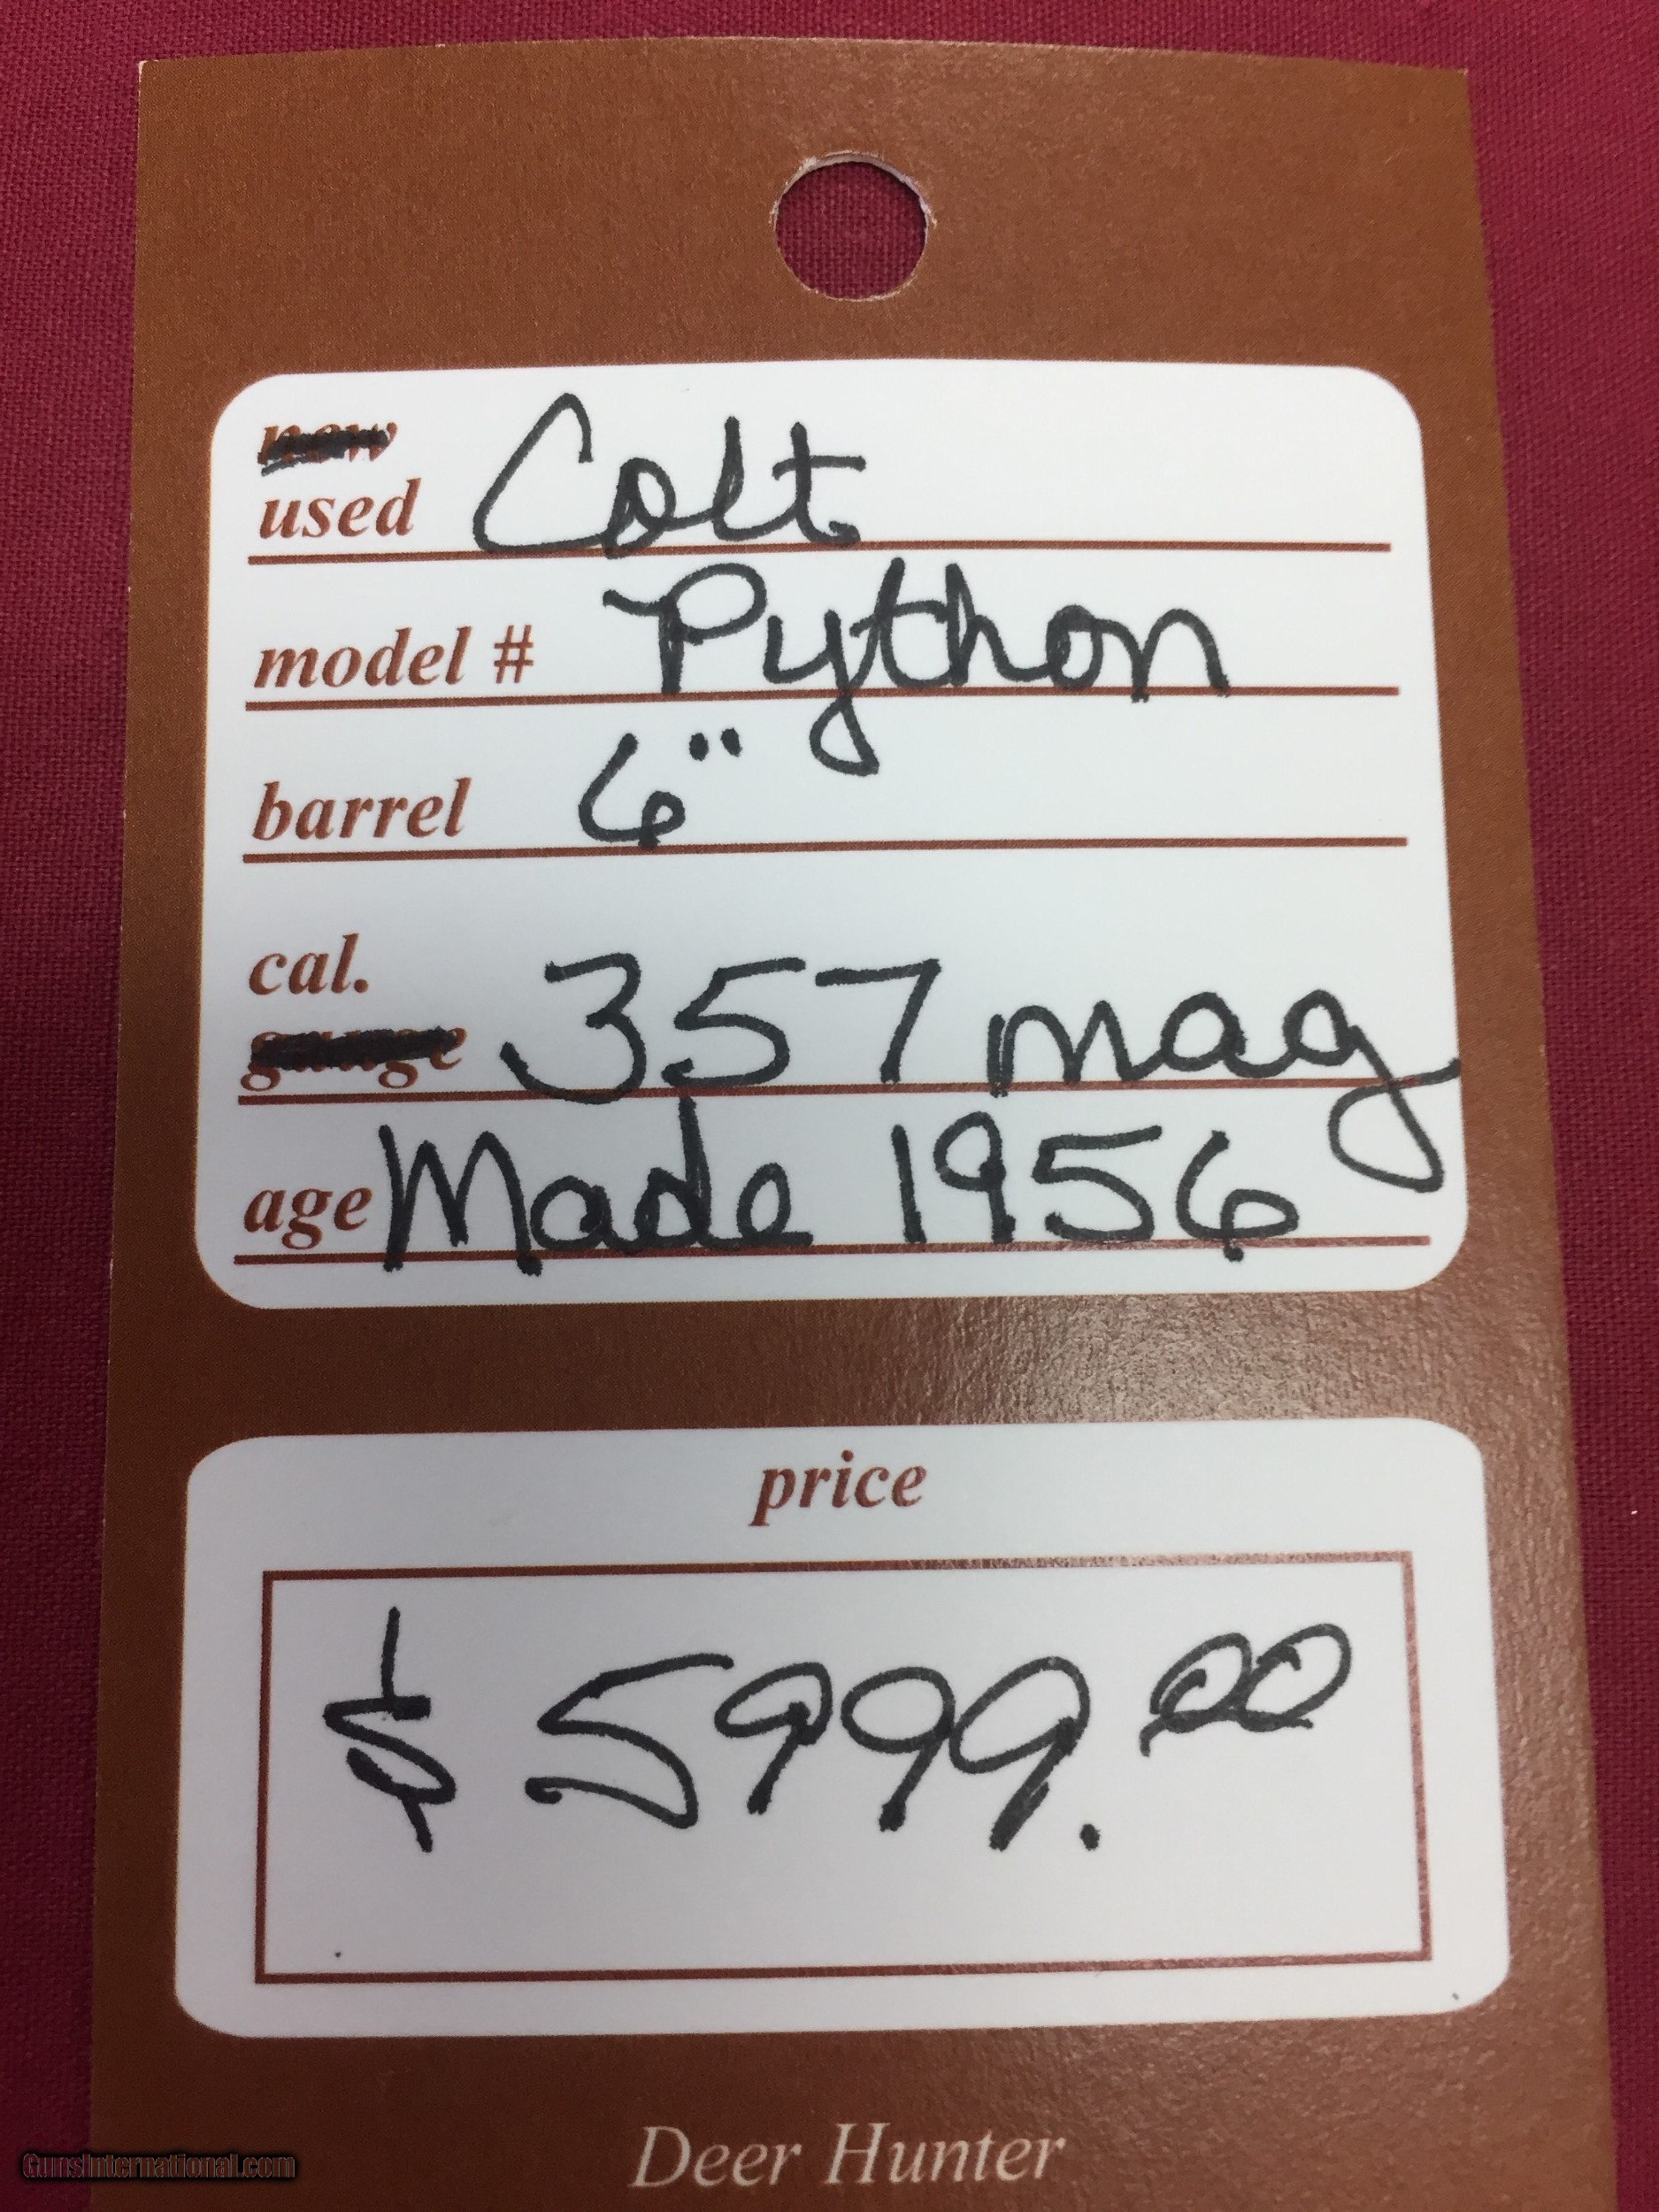 new
used Colt
model # Python
barrel 6"
cal.
gauge 357 mag
age Made 1956
price
$ 5999.00
Deer Hunter
GunsInternational.com